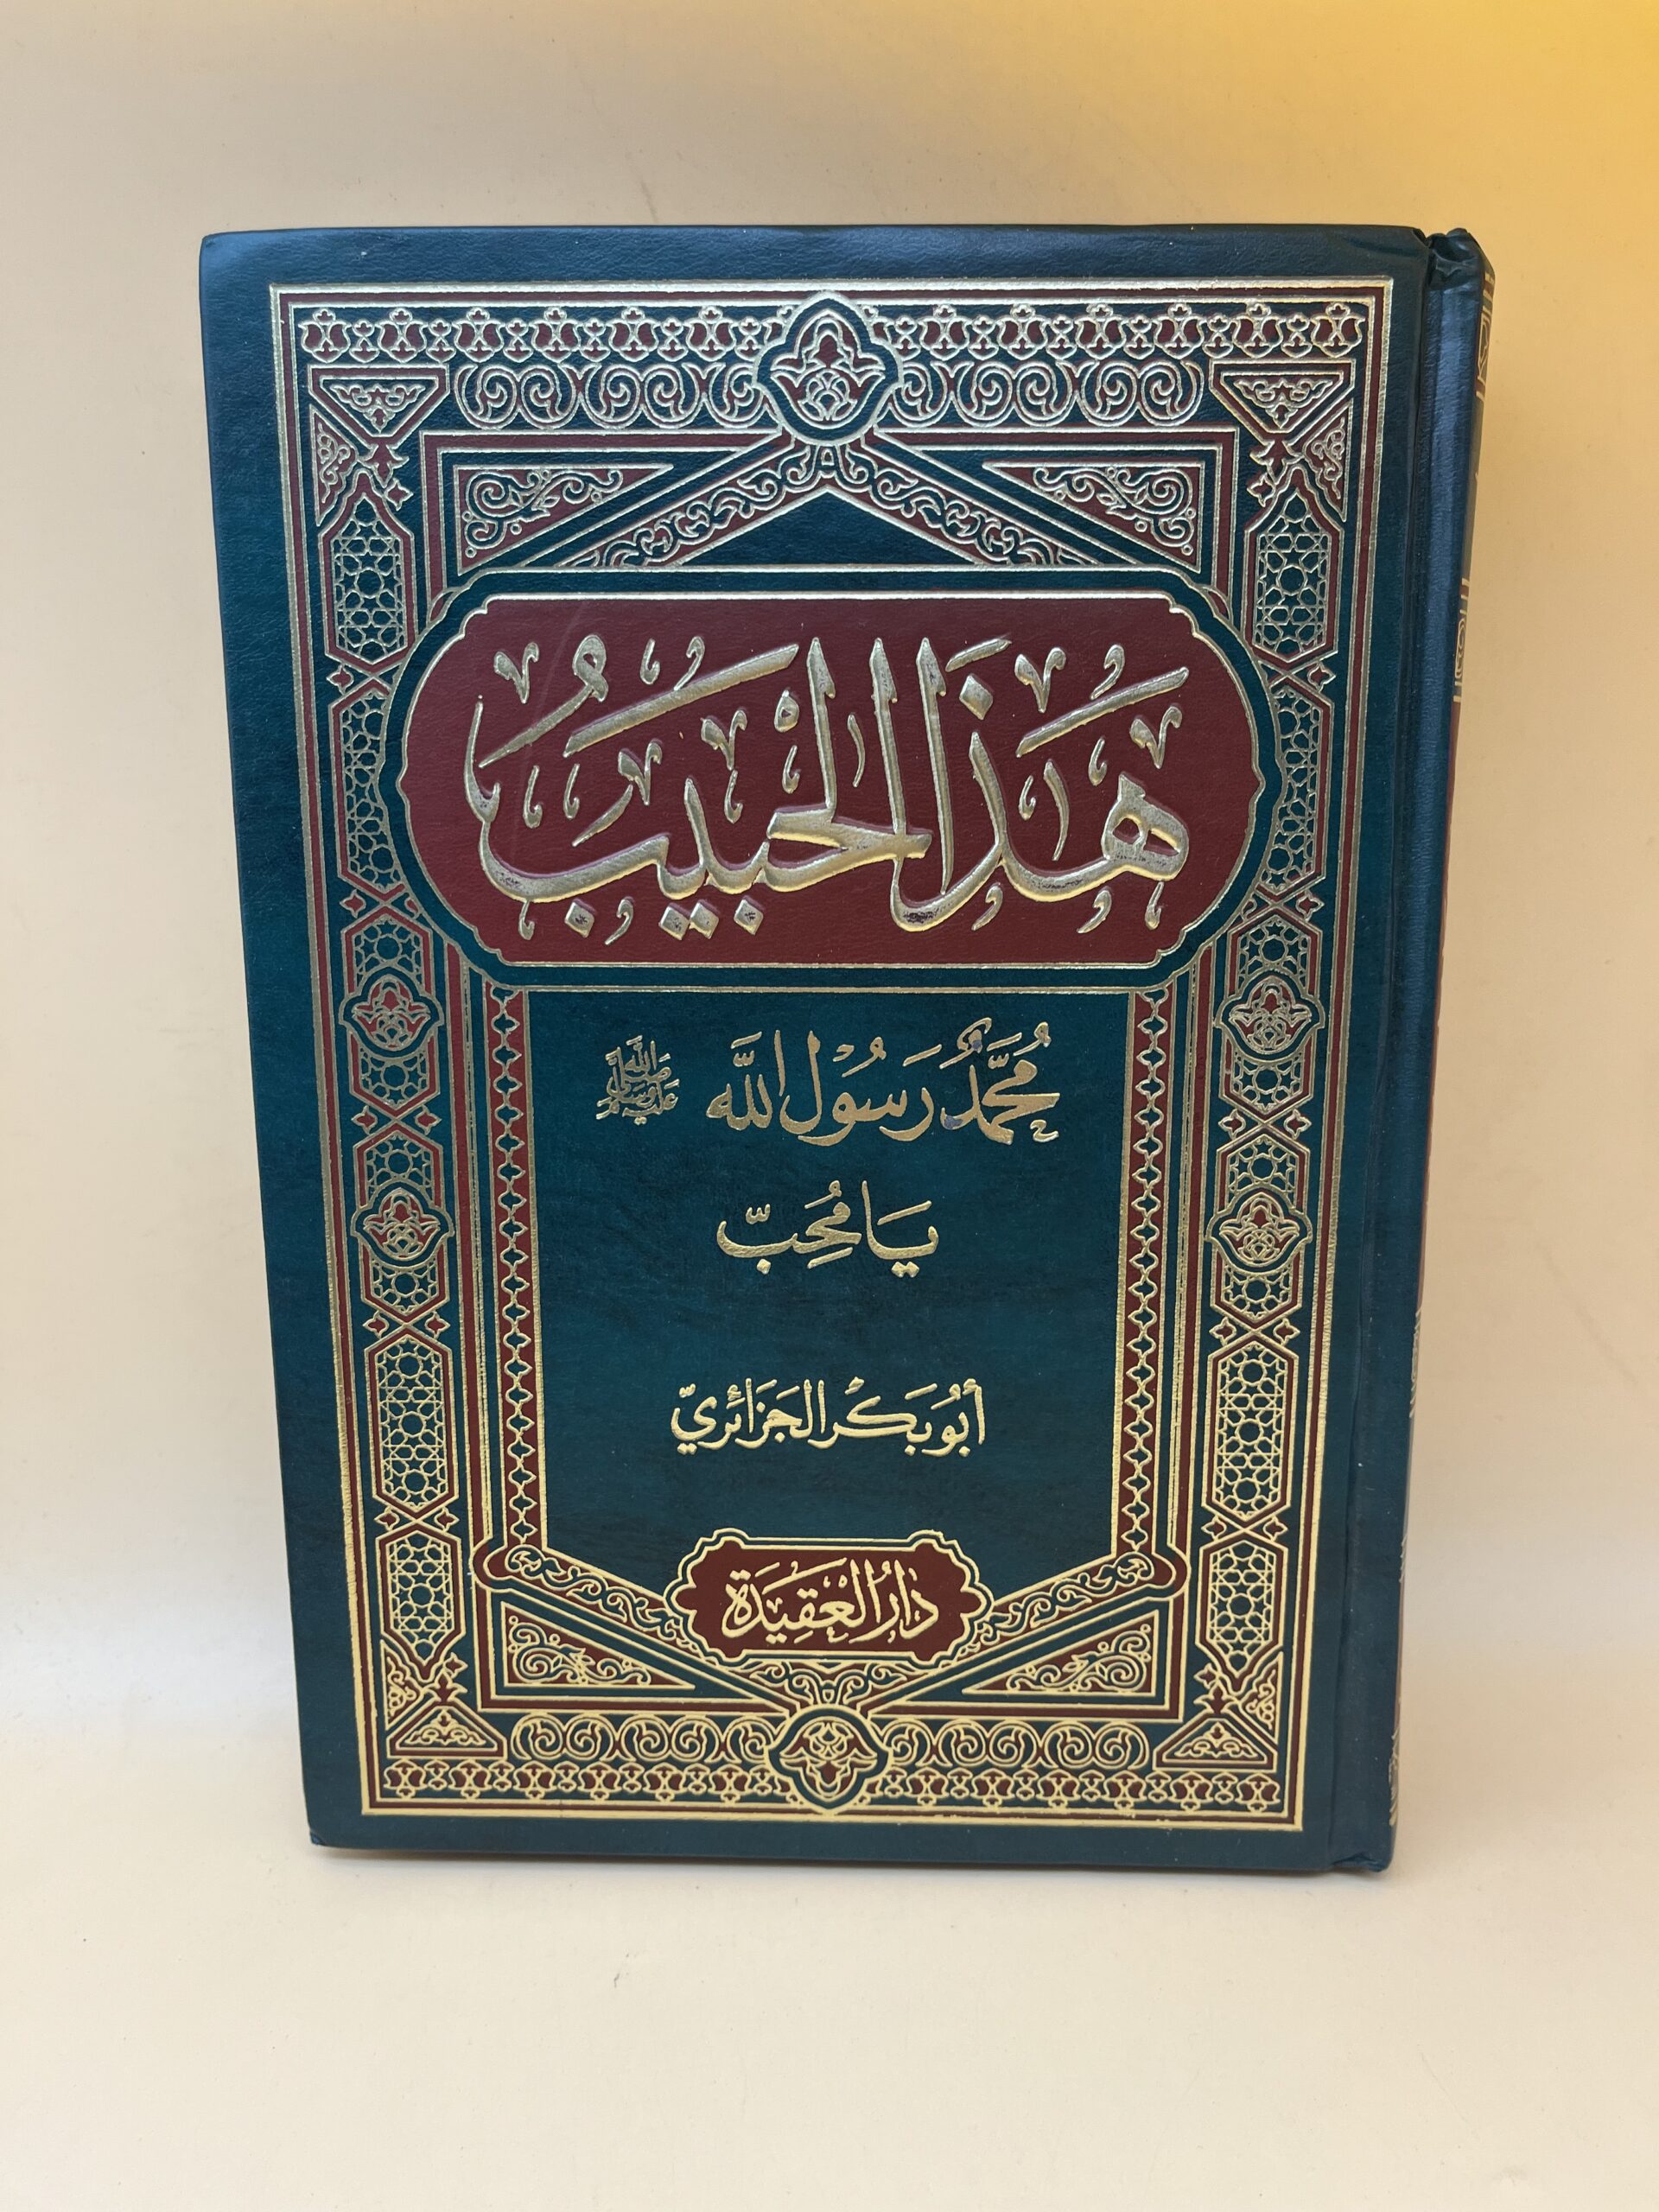 هَذَا الْحَبِيبُ
مُحَمَّدٌ رَسُولُ اللَّه ﷺ
يَا مُحِبّ
أبُو بَكْر الجَزَائِريّ
دَارُ الْعَقِيدَة